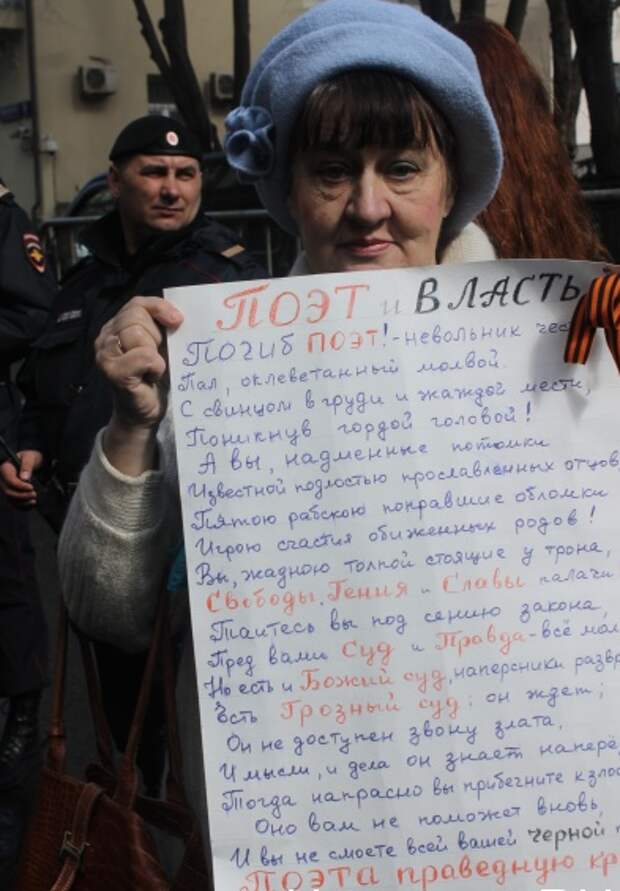 ПОЭТ и ВЛАСТЬ
Погиб ПОЭТ! - невольник чес
Пал, оклеветанный молвой.
С свинцом в груди и жаждой мести,
Поникнув гордой головой!
А вы, надменные потомки
Известной подлостью прославленных отцов,
Пятою рабскою поправшие обломки
Игрою счастия обиженных родов!
Вы, жадною толпой стоящие у трона,
Свободы, Гения и Славы палачи
Таитесь вы под сению закона,
Пред вами Суд и Правда - всё мол
Но есть и Божий суд, наперсники развра
Есть Грозный суд: он ждет;
Он не доступен звону злата,
И мысли, и дела он знает наперё
Тогда напрасно вы прибегните к злос
Оно вам не поможет вновь,
И вы не смоете всей вашей черной
ПОЭТА праведную кр